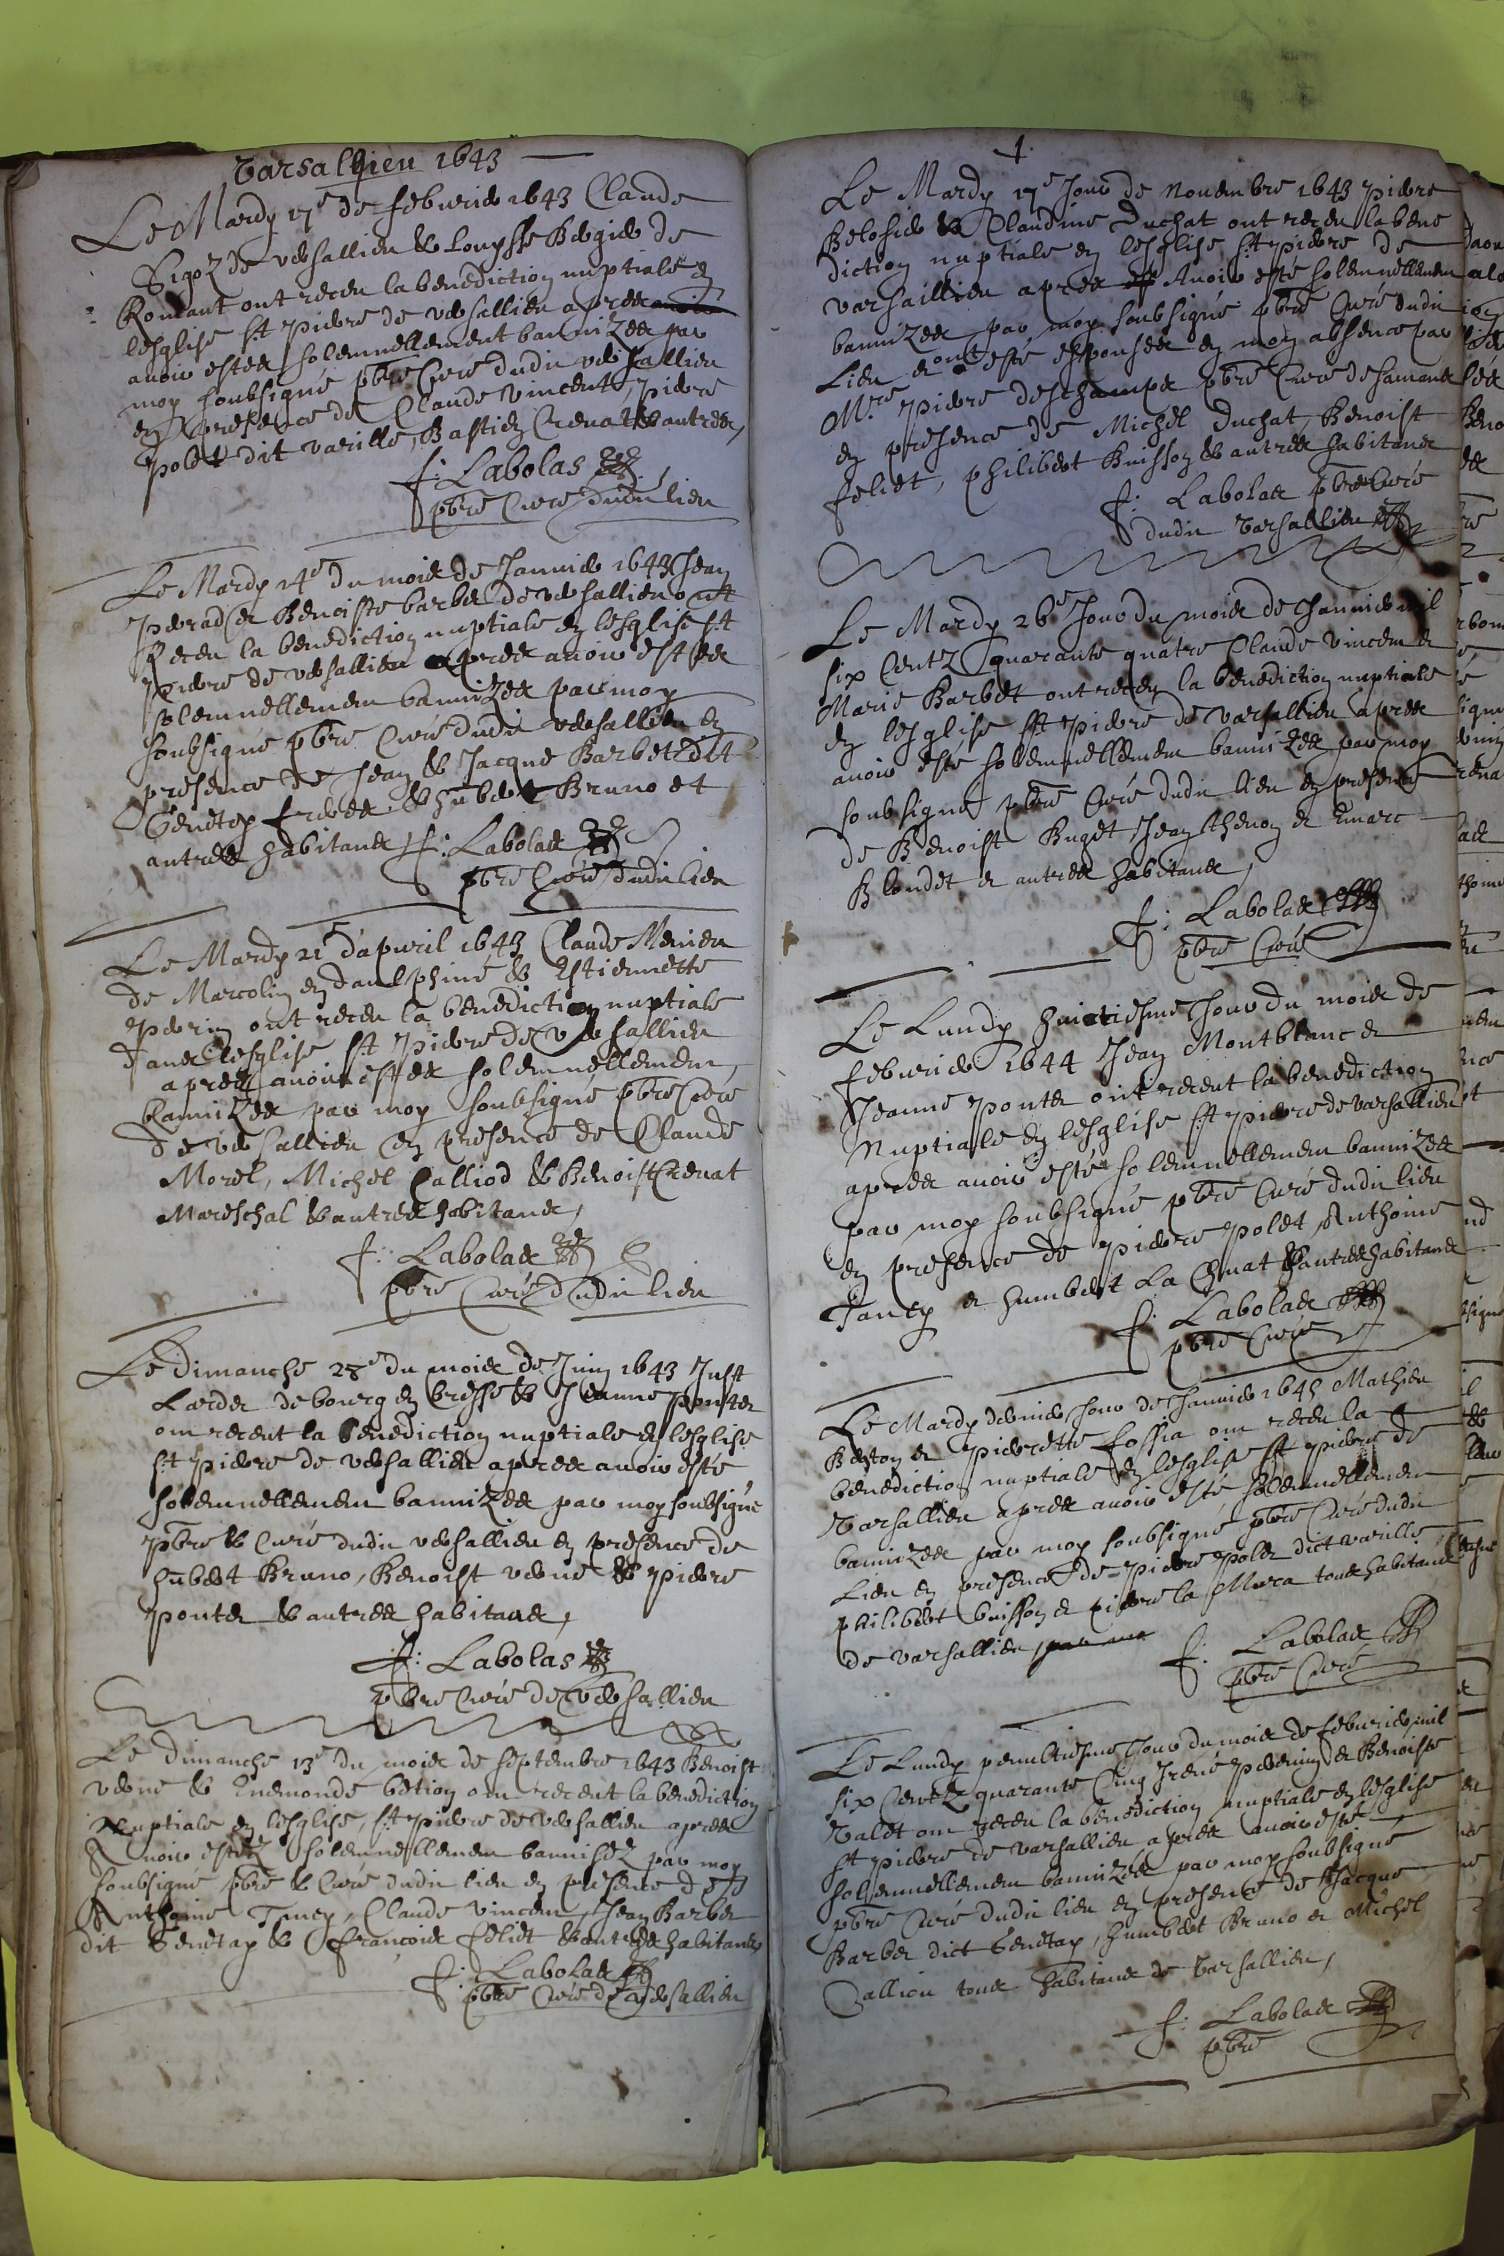 Varsallieu 1643
Le Mardy 17e de febvrier 1643 Claude
Sigoz de versallieu & Louysse Bergier de
Romant ont receu la benediction nuptiale en
lesglise St pierre de versallieu apres
avoir estes solemnellement bannizes par
moy soubsigné pbre Curé dudit versallieu
en presence de Claude Vincent, pierre
polet dit varille, Bastien Crenat & autres,
f: Labolas
pbre Curé dudit lieu
Le Mardy 14e du moies de Janvier 1643 Jean
perrad et Benoiste barbet de versallieu ont
Receu la benediction nuptiale en lesglise St
pierre de versallieu apres avoir estes
solemnellement bannizes par moy
soubsigné pbre Curé dudit versallieu en
presence de Jean & Jacque Barbet dit
Genetey freres & hubert Bruno et
autres habitans f: Labolas
pbre Curé dudit lieu
Le Mardy 21e dapvril 1643 Claude Menieu
de Marcolin en daulphiné & Estiennette
perrin ont receu la benediction nuptiale
dans lesglise St pierre de versallieu
apres avoir estes solemnellement
bannizes par moy soubsigné pbre Curé
de versallieu en presence de Claude
Morel, Michel Calliod & Benoist Crenat
Mareschal & autres habitans,
f: Labolas
pbre Curé dudit lieu
Le Dimanche 28e du moies de Juin 1643 Just
Larder de bourg en bresse & Jeanne ponter
ont recent la benediction nuptiale en lesglise
St pierre de versallieu apres avoir esté
solemnellement bannizes par moy soubsigné
pbre & Curé dudit versallieu en presence de
hubert Bruno, Benoist verne & pierre
ponter & autres habitans,
f: Labolas
pbre Curé de versallieu
Le dimanche 13e du moies de septembre 1643 Benoist
verne & Enemonde betion ont recent la benediction
Nuptiale en lesglise, St pierre de versallieu apres
Avoir estez solemnellement bannisez par moy
soubsigné pbre & Curé dudit lieu en presence de
Anthoine Tiney, Claude vincent, Jean Barbet
dit Genetay & françoies feliet & autres habitans
f: Labolas
pbre Curé de versallieu
1
Le Mardy 17e Jour de Novembre 1643 pierre
Belosier & Claudine Duchat ont receu la bene
diction nuptiale en lesglise St pierre de
varsaillieu apres Avoir esté solemnellement
bannizes par moy soubsigné pbre Curé dudit
Lieu et ont esté espouses en mon absence par
Mre pierre deschamps pbre Curé de samans
en presence de Michel Duchat, Benoist
feliet, philibert Buisson & autres habitans
f: Labolas pbre Curé
dudit Varsallieu
Le Mardy 26e Jour du moies de Janvier mil
six Centz quarante quatre Claude vincent et
Marie Barbet ont receu la benediction nuptiale
en lesglise St pierre de varsallieu apres
avoir esté solemnellement bannizes par moy
soubsigné pbre Curé dudit lieu en presence
de Benoist Buget Jean thenon et Emarc
Blondet et autres habitans,
f: Labolas
pbre Curé
Le Lundy huictiesme Jour du moies de
febvrier 1644 Jean Montblanc et
Jeanne ponter ont recent la benediction
Nuptiale en lesglise St pierre de varsallieu
apres avoir estés solemnellement bannizes
par moy soubsigné pbre Curé dudit lieu
en presence de pierre polet, Anthoine
Taney et humbert La Chuat & autres habitans
f: Labolas
pbre Curé
Le Mardy dernier Jour de Janvier 1645 Mathieu
Berton et pierrette fossia ont receu la
benediction nuptiale en lesglise St pierre de
Varsallieu apres avoir esté solemnellement
bannizes par moy soubsigné pbre Curé dudit
Lieu en presence de pierre polet dict varille
philibert buisson et pierre la Mura tous habitans
de varsallieu,
f: Labolas
pbre Curé
Le Lundy penultiesme Jour du moies de febvrier mil
six Centz quarante Cinq Irené perenin et Benoiste
Valet ont receu la benediction nuptiale en lesglise
St pierre de varsallieu apres avoir esté
solemnellement bannizes par moy soubsigné
pbre Curé dudit lieu en presence de Jacque
Barbet dict Genetay, humbert Bruno et Michel
Calliou tous habitans de Varsallieu,
f: Labolas
pbre